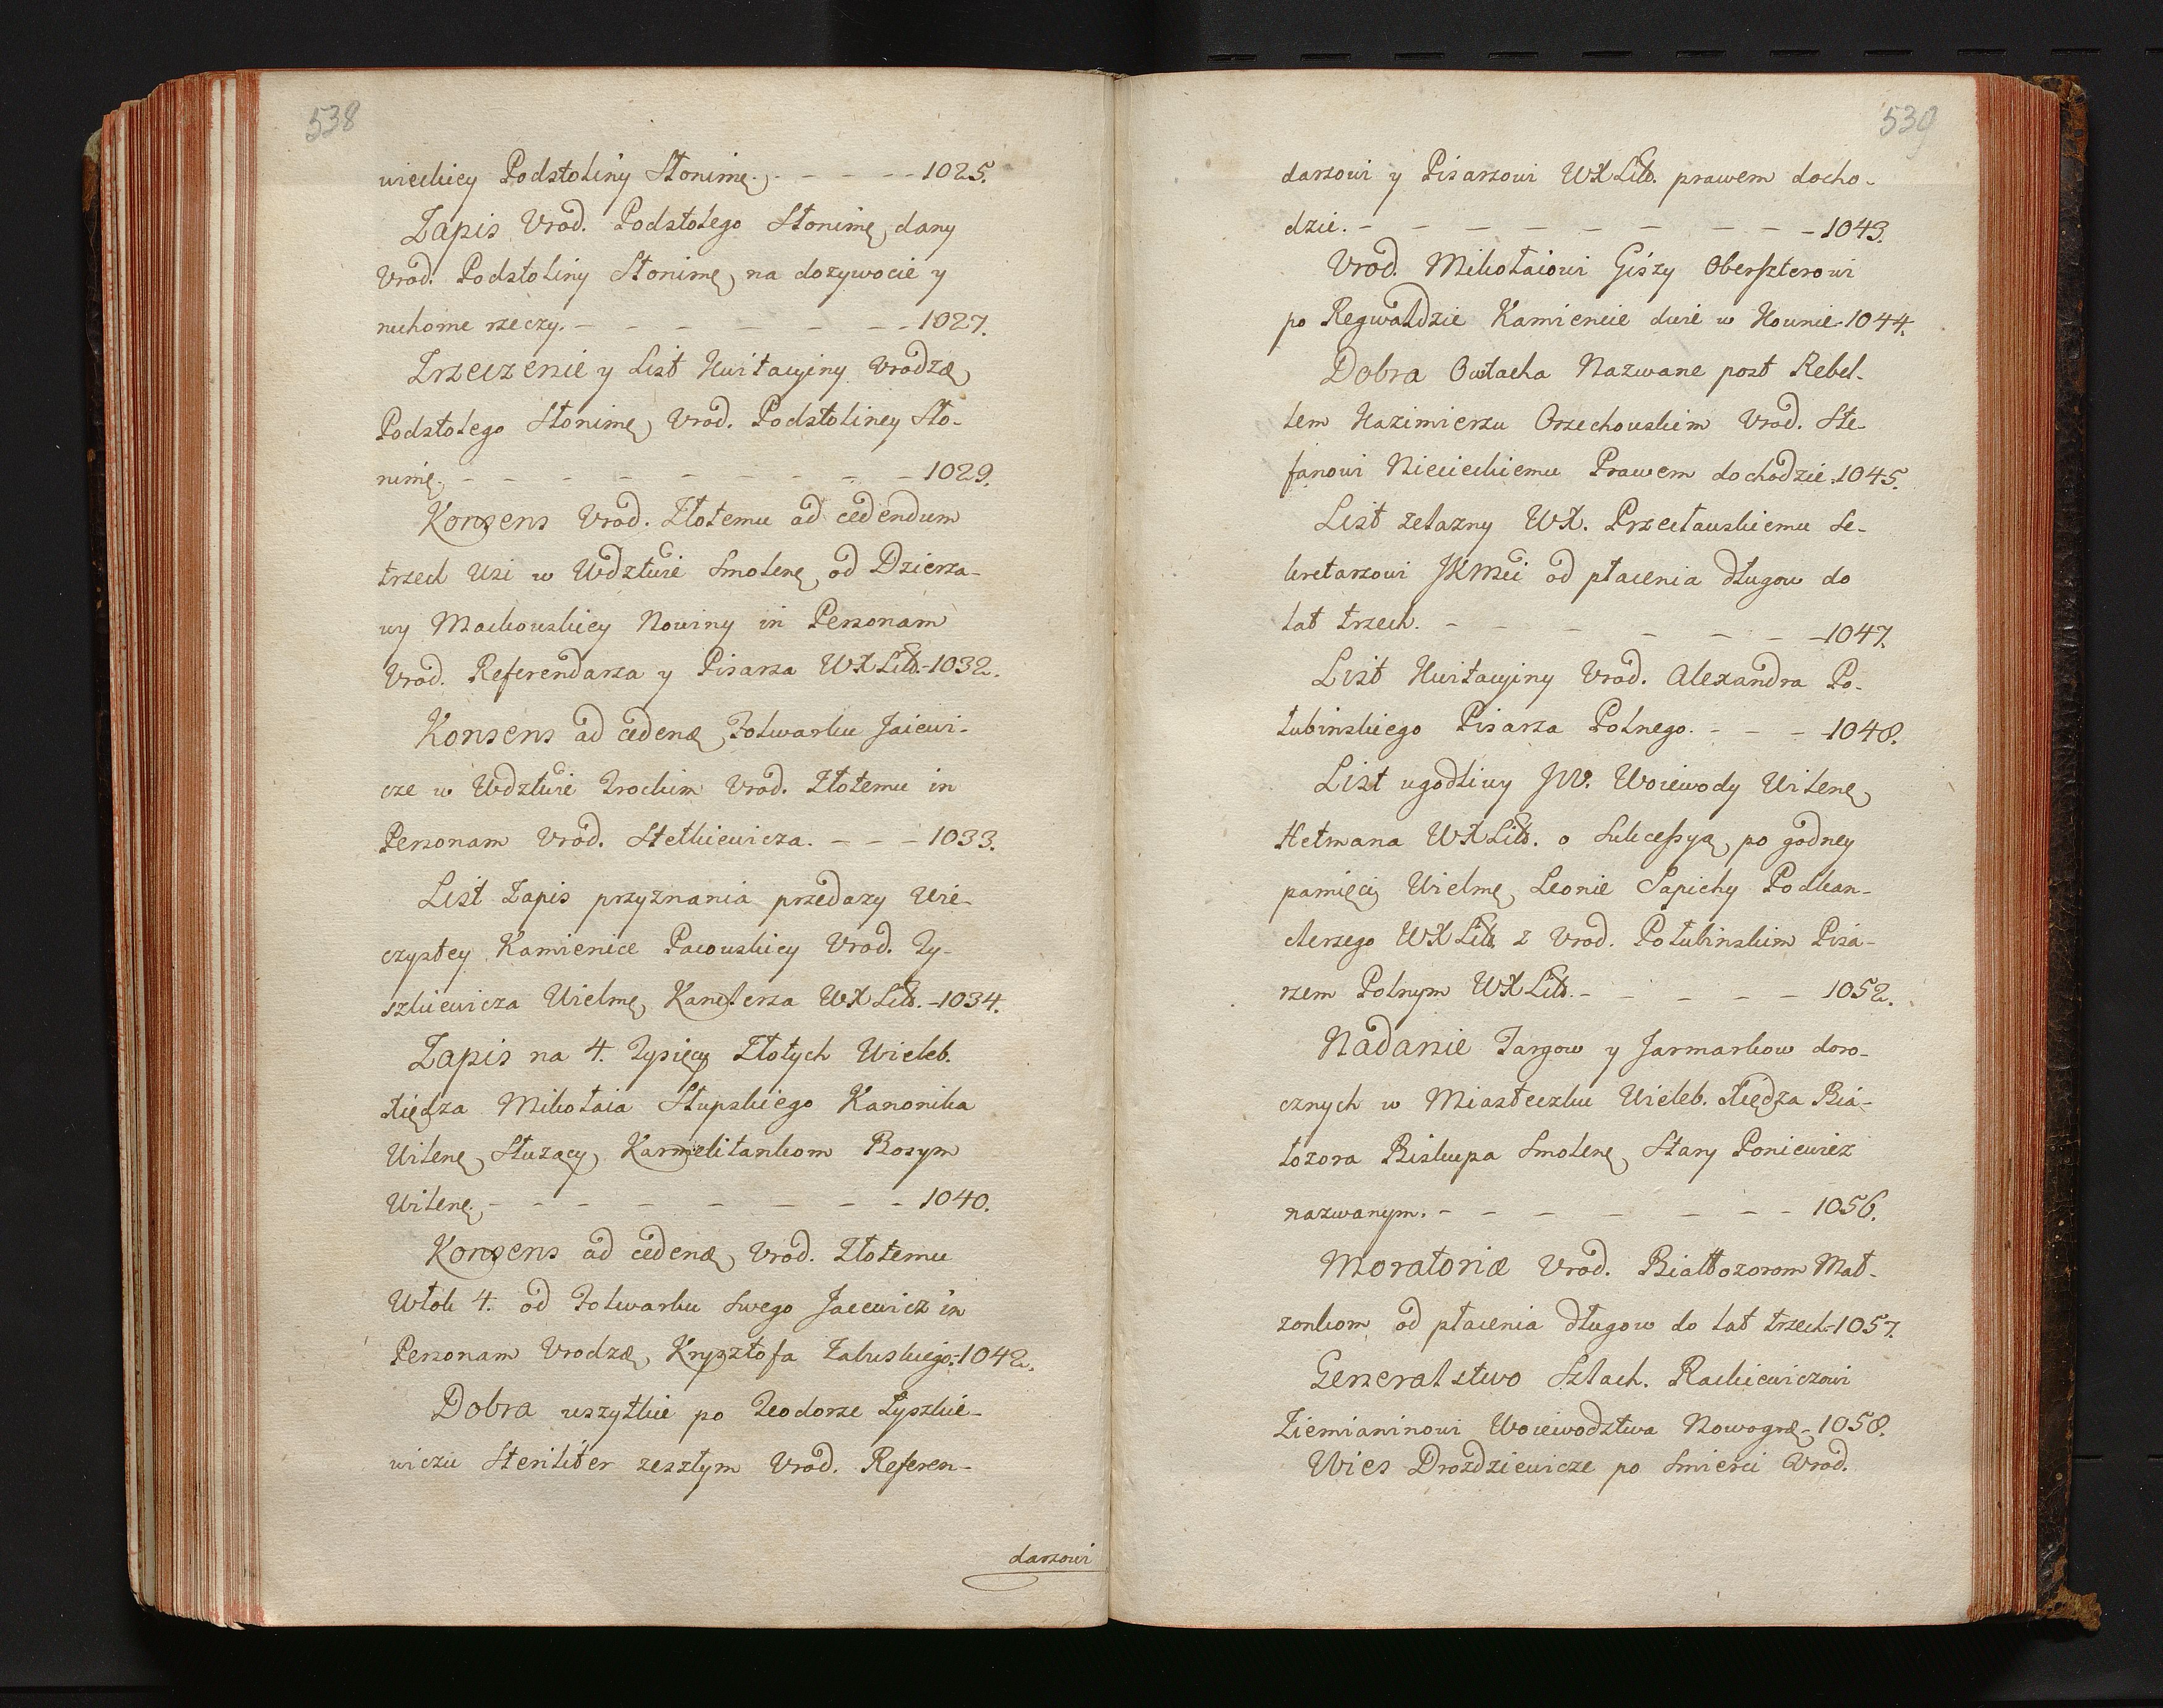 538
wieckiey Podstoliny Słonimę. - - - - - 1025.
Zapis Vrod. Podstolego Słonimę, dany
Vrod. Podstoliny Słonimę, na dozywocie y
ruchome rzeczy. - - - - - - - 1027.
Zrzeczenie y List Kwitacyiny Vrodzę,
Podstolego Słonimę, Vrod. Podstoliney Sło-
nimę. - - - - - - - - - 1029.
Konsens Vrod. Złotemu ad cedendum
trzech Wsi w Wdztwie Smolenę, od Dzierża-
wy Maćkowskiey Nowiny in Personam
Vrod. Referendarza y Pisarza WXLitt. - 1032.
Konsens ad cedenę, Folwarku Jaiewi-
cze w Wdztwie Trockim Vrod. Złotemu in
Personam Vrod. Stetkiewicza. - - - 1033.
List Zapis przyznania przedazy Wie-
czystey Kamienice Pacowskiey Vrod. Ty-
szkiewicza Wielmę, Kanclerza WXLitt. - 1034.
Zapis na 4. Tysięcy Złotych Wieleb.
Xiędza Mikołaia Słupskiego Kanonika
Wilenę, Służący, Karmelitankom Bosym
Wilenę. - - - - - - - - 1040.
Konsens ad cedenę, Vrod. Złotemu
Włok 4. od Folwarku swego Jacewicz in
Personam Vrodzę, Krysztofa Zaluskiego. - 1042.
Dobra wszytkie po Teodorze Tyszkie-
wiczu Steriliter zeszłym Vrod. Referen-
darzowi
539
darzowi y Pisarzowi WXLitt. prawem docho-
dzie. - - - - - - - - - 1043.
Vrod. Mikołaiowi Giszy Obersterowi
po Regwaldzie Kamienice dwie w Kownie - 1044.
Dobra Owtacha Nazwane post Rebel-
lem Kazimierzu Orzechowskim Vrod. Ste-
fanowi Niecieckiemu Prawem dochodzie. 1045.
List zelazny WX. Przecławskiemu Se-
kretarzowi JKMci od płacenia długow do
lat trzech. - - - - - - - 1047.
List Kwitacyiny Vrod. Alexandra Po-
łubinskiego Pisarza Polnego. - - - 1048.
List ugodliwy JW. Woiewody Wilenę,
Hetmana WXLitt. o Sukcessyą, po godney
pamięci Wielmę, Leonie Sapiehy Podkan-
clerzego WXLitt. z Vrod. Połubinskim Pisa-
rzem Polnym WXLitt. - - - - - 1052.
Nadanie Targow y Jarmarkow doro-
cznych w Miasteczku Wieleb. Xiędza Bia-
łozora Biskupa Smolenę, Stary Poniewiez
nazwanym. - - - - - - - 1056.
Moratoriæ Vrod. Białłozorom Mał-
zonkom od płacenia długow do lat trzech - 1057.
Generalstwo Szlach. Rackiewiczowi
Ziemianinowi Woiewodztwa Nowogrę, - 1058.
Wies Drozdziewicze po smierci Vrod.